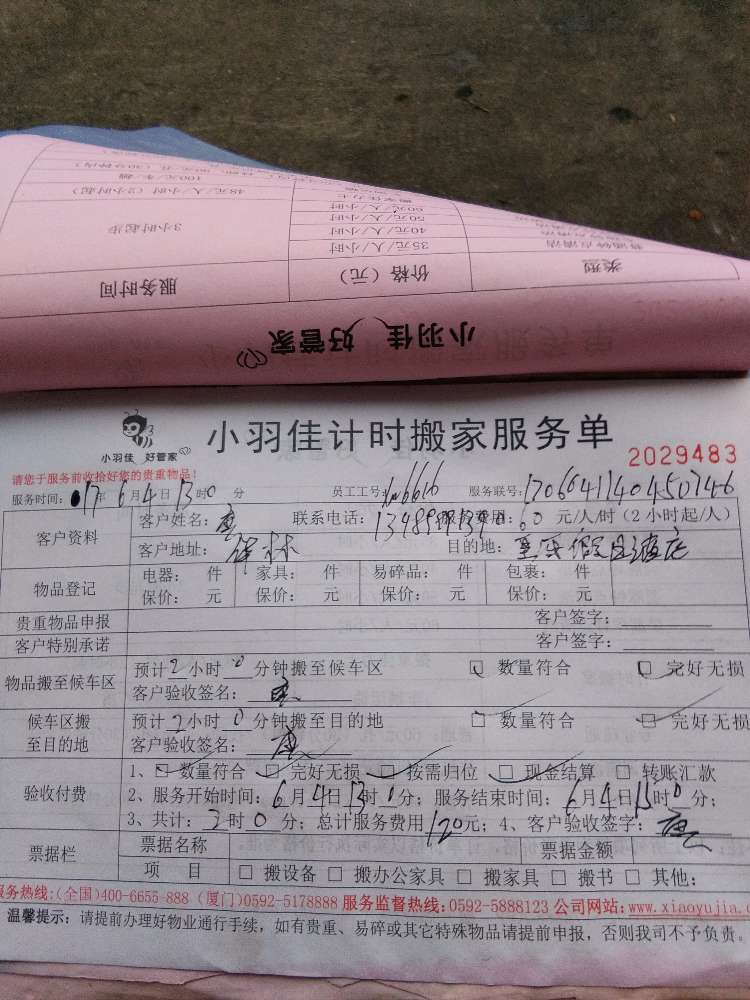 小羽佳 好管家
类型 价格（元） 服务时间
35元/人/小时
40元/人/小时
50元/人/小时
60元/人/小时
3小时起步
48元/人/小时（2小时起）
100元/车/趟
小羽佳 好管家
小羽佳计时搬家服务单
2029483
请您于服务前收拾好您的贵重物品！
服务时间：017年6月4日13时0分 员工工号：6616 服务联号：
客户资料
客户姓名：唐 联系电话： 60元/人/时（2小时起/人）
客户地址： 目的地：
物品登记
电器： 件 家具： 件 易碎品： 件 包裹： 件
保价： 元 保价： 元 保价： 元 保价： 元
贵重物品申报 客户签字：
客户特别承诺 客户签字：
物品搬至候车区
预计2小时0分钟搬至候车区 数量符合 完好无损
客户验收签名：唐
候车区搬至目的地
预计2小时0分钟搬至目的地 数量符合 完好无损
客户验收签名：唐
验收付费
1、数量符合 完好无损 按需归位 现金结算 转账汇款
2、服务开始时间：6月4日13时0分；服务结束时间：6月4日15时0分；
3、共计：3时0分；总计服务费用120元；4、客户验收签字：唐
票据栏
票据名称 票据金额
项 目 搬设备 搬办公家具 搬家具 搬书 其他：
服务热线：(全国)400-6655-888 (厦门)0592-5178888 服务监督热线：0592-5888123 公司网站：www.xiaoyujia.c
温馨提示：请提前办理好物业通行手续，如有贵重、易碎或其它特殊物品请提前申报，否则我司不予负责。